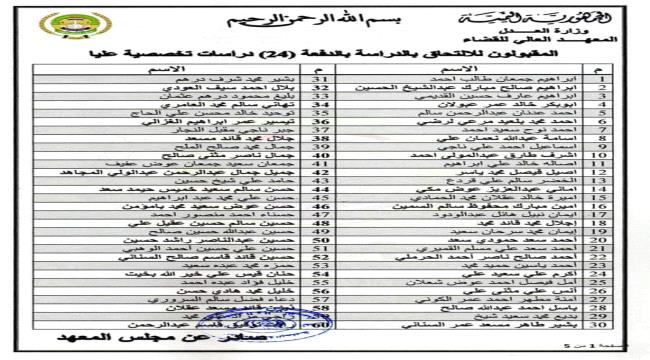 الجمهورية اليمنية
وزارة العدل
المعهد العالي للقضاء
بسم الله الرحمن الرحيم
المقبولون للالتحاق بالدراسة بالدفعة (24) دراسات تخصصية عليا
م الاسم م الاسم
1 ابراهيم جمعان طالب احمد 31 بشير محمد شرف درهم
2 ابراهيم صالح مبارك عبدالشيخ الحسين 32 بلال احمد سيف العودي
3 ابراهيم عارف حسين القديمي 33 بليغ محمود درهم عثمان
4 ابوبكر خالد عمر عبولان 34 تهاني سالم محمد العامري
5 احمد عدنان عبدالرحمن سالم 35 توحيد خالد محسن علي الحاج
6 احمد محمد بلعيد مرعي لرضي 36 تيسير عمر ابراهيم القزالي
7 احمد نوح سعيد احمد 37 جبر ناجي مقبل النجار
8 اسامة عبدالله نعمان علي 38 جلال محمد قائد مسعد
9 اسماعيل احمد علي ناجي 39 جمال محمد صالح الملح
10 اشرف طارق عبدالمولى احمد 40 جمال ناصر مثنى صالح
11 اصاله خالد علي ابراهيم 41 جمعان سعيد جمعان عوض عفيف
12 اصيل فيصل محمد ياسر 42 جميل جمال عبدالرحمن عبدالولي المجاهد
13 الخضر سالم علي فردج 43 حامد علي شيخ حسين
14 اماني عبدالعزيز عوض مكي 44 حسن سالم سعيد خميس حيمد سعد
15 اميرة خالد عقلان محمد الحمادي 45 حسن علي محمد عبد ابراهيم
16 امين مبارك محفوظ سالم السمين 46 حسن عوض سعيد محمد بامؤمن
17 ايمان نبيل هائل عبدالودود 47 حسناء احمد منصور احمد
18 اجلال محمد قائد محمد 48 حسين سالم حسين عقيل علي
19 ايمان محمد سرحان سعيد 49 حسين عبدالله حسين صالح
20 احمد سعد حمودي سعد 50 حسين عبدالناصر راشد حسين
21 احمد سعد علي مسلم القميري 51 حسين علي حسين احمد الوهبي
22 احمد صالح ناصر احمد الحرملي 52 حسين قائد قاسم صالح السناني
23 احمد ياسين حميد محمد 53 حمزه محمد عبده سعيد
24 اكرم علي سعيد علي 54 حنان قيس علي خير الله بخيت
25 امل فيصل احمد عوض شعلان 55 خليل فؤاد عبده احمد
26 انس علي مثنى علي 56 خليل محمد هادي حسن
27 آمنة مطهر احمد عمر الكوني 57 دعاء فضل سالم السروري
28 باسل احمد عبدالله صالح 58 قائد مسعد عقلان
29 بديع محمد سعيد شيخ 59 محمد
30 بشير طاهر مسعد عمر السناني 60 توفيق قاسم عبدالرحمن
صادر عن مجلس المعهد
صفحة 1 من 5